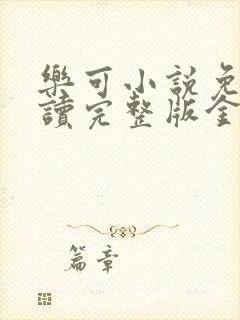 樂可小説免
讀完整版全
篇章